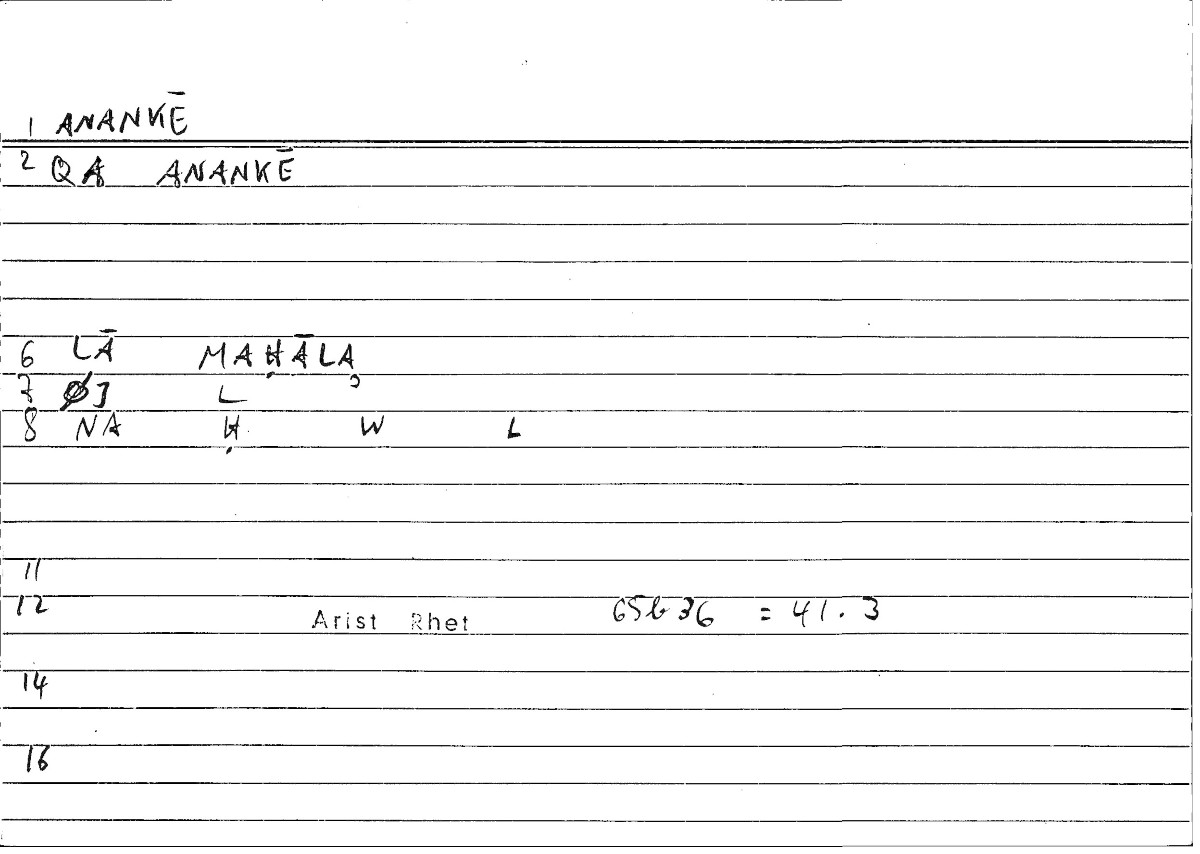 1 ANANKĒ
2 QA ANANKĒ
6 LĀ MAḤĀLA
7 ØJ L
8 NA Ḥ W L
11
12 Arist Rhet 65b36 = 41.3
14
16